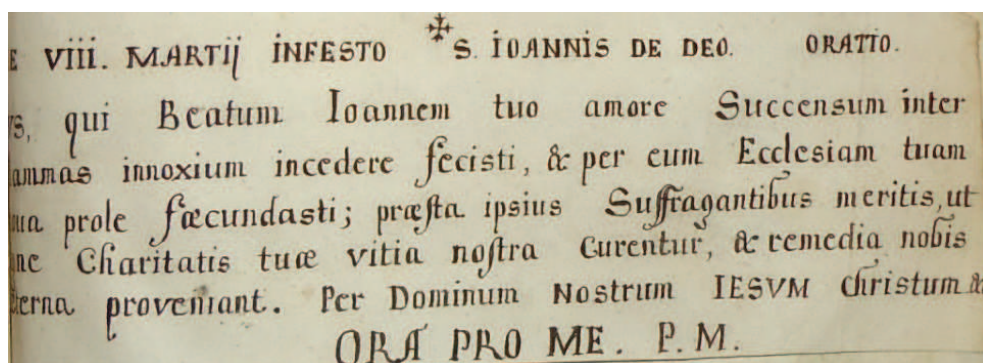 E VIII. MARTIJ INFESTO S. IOANNIS DE DEO. ORATIO.
s, qui Beatum Ioannem tuo amore Succensum inter
ammas innoxium incedere fecisti, & per eum Ecclesiam tuam
prole fœcundasti; præsta ipsius Suffragantibus meritis, ut
ne Charitatis tuæ vitia nostra Curentur, & remedia nobis
terna proveniant. Per Dominum Nostrum IESVM Christum &
ORA PRO ME. P. M.